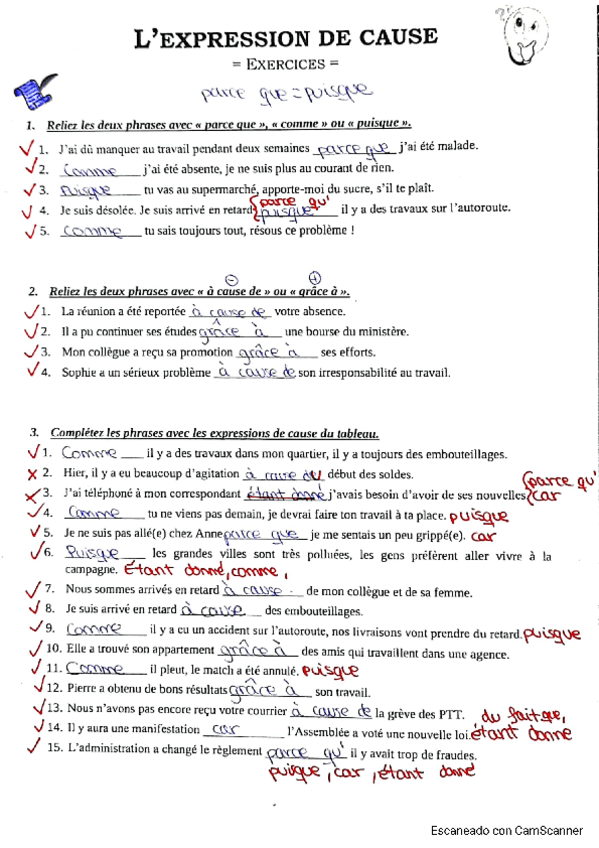 L'EXPRESSION DE CAUSE
= EXERCICES =
parce que = puisque
1. Reliez les deux phrases avec « parce que », « comme » ou « puisque ».
1. J'ai dû manquer au travail pendant deux semaines parce que j'ai été malade.
2. Comme j'ai été absente, je ne suis plus au courant de rien.
3. Puisque tu vas au supermarché, apporte-moi du sucre, s'il te plaît.
parce qu'
4. Je suis désolée. Je suis arrivé en retard puisque il y a des travaux sur l'autoroute.
5. Comme tu sais toujours tout, résous ce problème !
- +
2. Reliez les deux phrases avec « à cause de » ou « grâce à ».
1. La réunion a été reportée à cause de votre absence.
2. Il a pu continuer ses études grâce à une bourse du ministère.
3. Mon collègue a reçu sa promotion grâce à ses efforts.
4. Sophie a un sérieux problème à cause de son irresponsabilité au travail.
3. Complétez les phrases avec les expressions de cause du tableau.
1. Comme il y a des travaux dans mon quartier, il y a toujours des embouteillages.
2. Hier, il y a eu beaucoup d'agitation à cause du début des soldes.
parce qu'
3. J'ai téléphoné à mon correspondant étant donné j'avais besoin d'avoir de ses nouvelles car
4. Comme tu ne viens pas demain, je devrai faire ton travail à ta place. puisque
5. Je ne suis pas allé(e) chez Anne parce que je me sentais un peu grippé(e). car
6. Puisque les grandes villes sont très polluées, les gens préfèrent aller vivre à la
campagne. Étant donné, comme,
7. Nous sommes arrivés en retard à cause de mon collègue et de sa femme.
8. Je suis arrivé en retard à cause des embouteillages.
9. Comme il y a eu un accident sur l'autoroute, nos livraisons vont prendre du retard. puisque
10. Elle a trouvé son appartement grâce à des amis qui travaillent dans une agence.
11. Comme il pleut, le match a été annulé. puisque
12. Pierre a obtenu de bons résultats grâce à son travail.
13. Nous n'avons pas encore reçu votre courrier à cause de la grève des PTT. du fait que,
14. Il y aura une manifestation car l'Assemblée a voté une nouvelle loi. étant donné
15. L'administration a changé le règlement parce qu' il y avait trop de fraudes.
puisque, car, étant donné
Escaneado con CamScanner